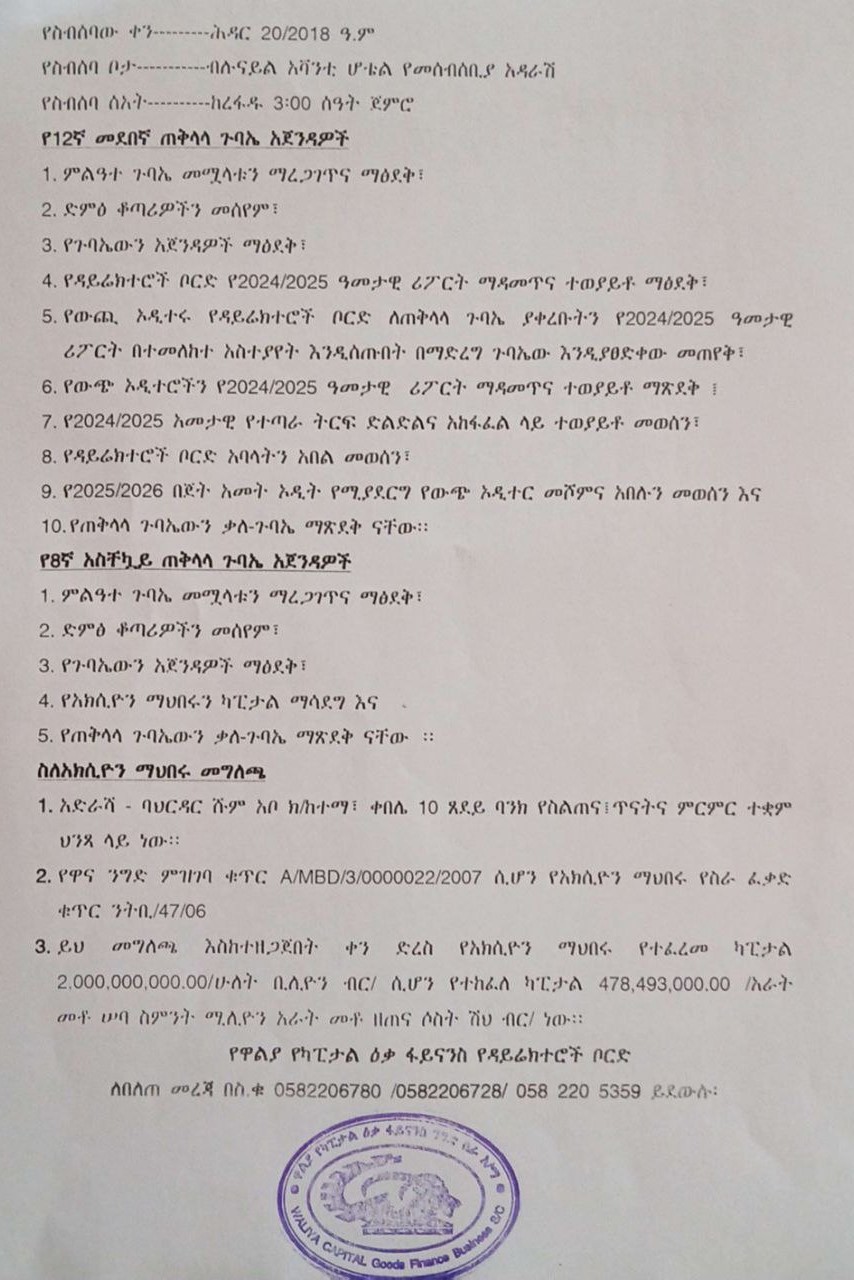 የስብሰባው ቀን---------ሕዳር 20/2018 ዓ.ም
የስብሰባ ቦታ-----------ብሉናይል አቫንቲ ሆቴል የመሰብሰቢያ አዳራሽ
የስብሰባ ሰአት----------ከረፋዱ 3:00 ሰዓት ጀምሮ
የ12ኛ መደበኛ ጠቅላላ ጉባኤ አጀንዳዎች
1. ምልዓተ ጉባኤ መሟላቱን ማረጋገጥና ማፅደቅ፣
2. ድምፅ ቆጣሪዎችን መሰየም፣
3. የጉባኤውን አጀንዳዎች ማፅደቅ፣
4. የዳይሬክተሮች ቦርድ የ2024/2025 ዓመታዊ ሪፖርት ማዳመጥና ተወያይቶ ማፅደቅ፣
5. የውጪ ኦዲተሩ የዳይሬክተሮች ቦርድ ለጠቅላላ ጉባኤ ያቀረቡትን የ2024/2025 ዓመታዊ
ሪፖርት በተመለከተ አስተያየት እንዲሰጡበት በማድረግ ጉባኤው እንዲያፀድቀው መጠየቅ፣
6. የውጭ ኦዲተሮችን የ2024/2025 ዓመታዊ ሪፖርት ማዳመጥና ተወያይቶ ማጽደቅ ፤
7. የ2024/2025 አመታዊ የተጣራ ትርፍ ድልድልና አከፋፈል ላይ ተወያይቶ መወሰን፣
8. የዳይሬክተሮች ቦርድ አባላትን አበል መወሰን፣
9. የ2025/2026 በጀት አመት ኦዲት የሚያደርግ የውጭ ኦዲተር መሾምና አበሉን መወሰን እና
10.የጠቅላላ ጉባኤውን ቃለ-ጉባኤ ማጽደቅ ናቸው።
የ8ኛ አስቸኳይ ጠቅላላ ጉባኤ አጀንዳዎች
1. ምልዓተ ጉባኤ መሟላቱን ማረጋገጥና ማፅደቅ፣
2. ድምፅ ቆጣሪዎችን መሰየም፣
3. የጉባኤውን አጀንዳዎች ማፅደቅ፣
4. የአክሲዮን ማህበሩን ካፒታል ማሳደግ እና
5. የጠቅላላ ጉባኤውን ቃለ-ጉባኤ ማጽደቅ ናቸው ።
ስለአክሲዮን ማህበሩ መግለጫ
1. አድራሻ - ባህርዳር ሹም አቦ ክ/ከተማ፣ ቀበሌ 10 ጸደይ ባንክ የስልጠና፤ጥናትና ምርምር ተቋም
ህንጻ ላይ ነው።
2. የዋና ንግድ ምዝገባ ቁጥር A/MBD/3/0000022/2007 ሲሆን የአክሲዮን ማህበሩ የስራ ፈቃድ
ቁጥር ንትቢ/47/06
3. ይህ መግለጫ እስከተዘጋጀበት ቀን ድረስ የአክሲዮን ማህበሩ የተፈረመ ካፒታል
2,000,000,000.00/ሁለት ቢሊዮን ብር/ ሲሆን የተከፈለ ካፒታል 478,493,000.00 /አራት
መቶ ሠባ ስምንት ሚሊዮን አራት መቶ ዘጠና ሶስት ሽህ ብር/ ነው።
የዋልያ የካፒታል ዕቃ ፋይናንስ የዳይሬክተሮች ቦርድ
ለበለጠ መረጃ በስ.ቁ 0582206780 /0582206728/ 058 220 5359 ይደውሉ፡
የዋልያ የካፒታል ዕቃ ፋይናንስ ንግድ ስራ አ.ማ
WALIYA CAPITAL Goods Finance Business S/C